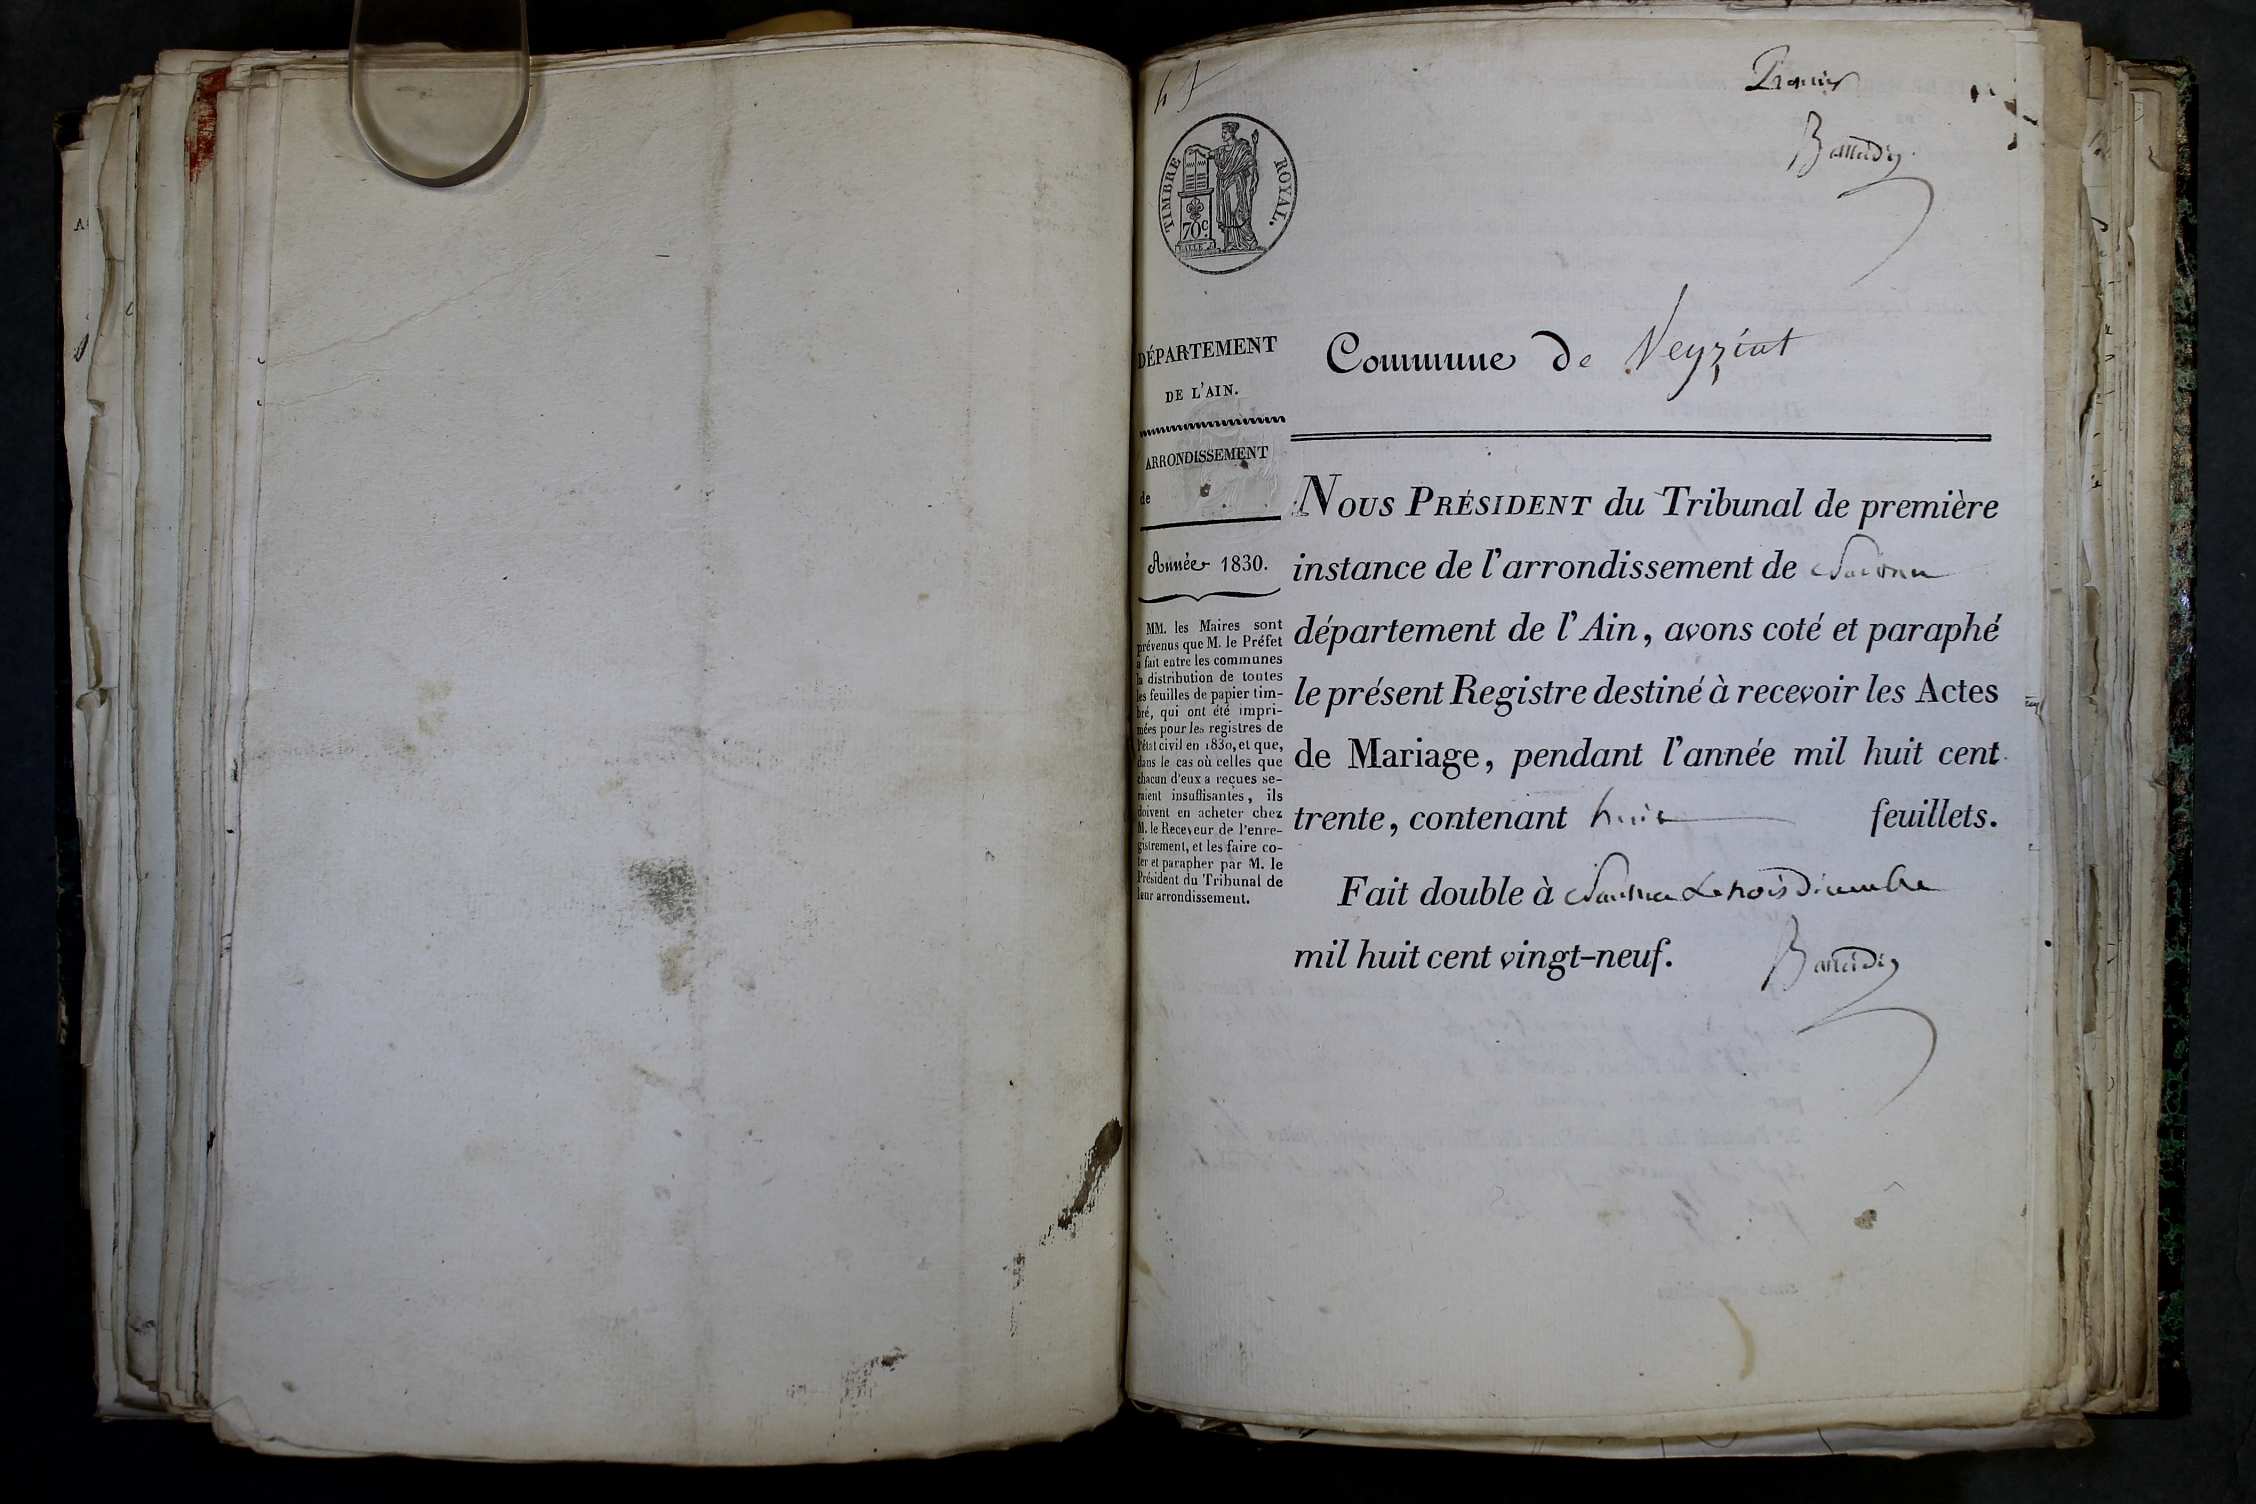 Premier
TIMBRE ROYAL.
70 c.
DÉPARTEMENT
DE L'AIN.
Commune de Veyziat
ARRONDISSEMENT
de
Année 1830.
MM. les Maires sont
prévenus que M. le Préfet
a fait entre les communes
la distribution de toutes
les feuilles de papier tim-
bré, qui ont été impri-
mées pour les registres de
l'état civil en 1830, et que,
dans le cas où celles que
chacun d'eux a reçues se-
raient insuffisantes, ils
doivent en acheter chez
M. le Receveur de l'enre-
gistrement, et les faire co-
ter et parapher par M. le
Président du Tribunal de
leur arrondissement.
NOUS PRÉSIDENT du Tribunal de première
instance de l'arrondissement de Nantua
département de l'Ain, avons coté et paraphé
le présent Registre destiné à recevoir les Actes
de Mariage, pendant l'année mil huit cent
trente, contenant huit feuillets.
Fait double à Nantua Le trois Décembre
mil huit cent vingt-neuf.